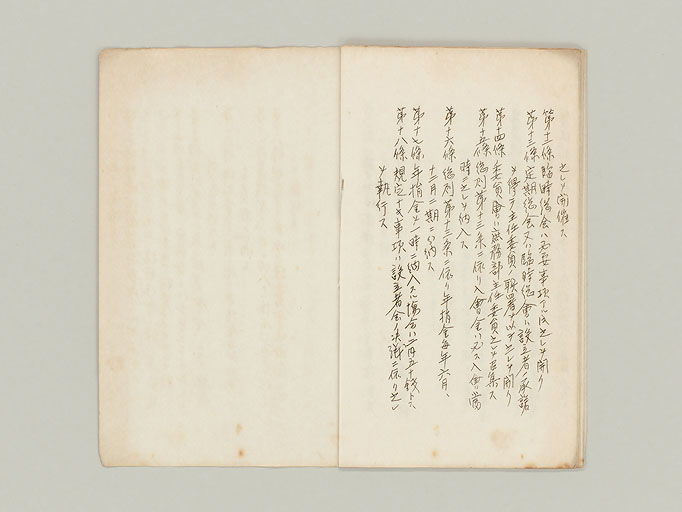 之レヲ開催ス
第十二條 臨時總会ハ必要事項アル時之レヲ開ク
第十三條 定期總会又ハ臨時總會ハ設立者ノ承諾
ヲ得テ主任委員ノ職署ヲ以テ之レヲ開ク
第十四條 委員會ハ庶務部主任委員之レヲ召集ス
第十五條 總則第十二条ニ依リ入會金ハ必ス入會當
時ニ之レヲ納入ス
第十六條 總則第十三条ニ依リ年捐金毎年六月、
十二月二期ニ分納ス
第十七條 年捐金ヲ一時ニ納入スル場合ハ二円五十銭トス、
第十八條 規定ナキ事項ハ設立者会ノ決議ニ依リ之レ
ヲ執行ス